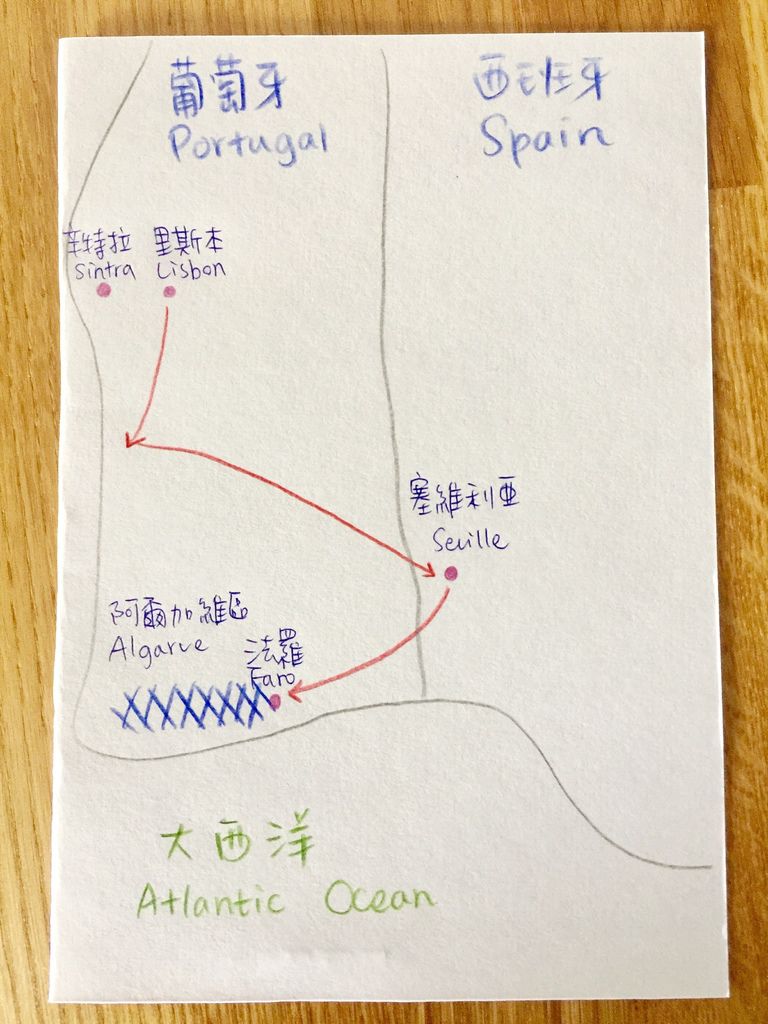 葡萄牙
Portugal
西班牙
Spain
辛特拉
Sintra
里斯本
Lisbon
塞維利亞
Seville
阿爾加維區
Algarve
法羅
Faro
大西洋
Atlantic Ocean